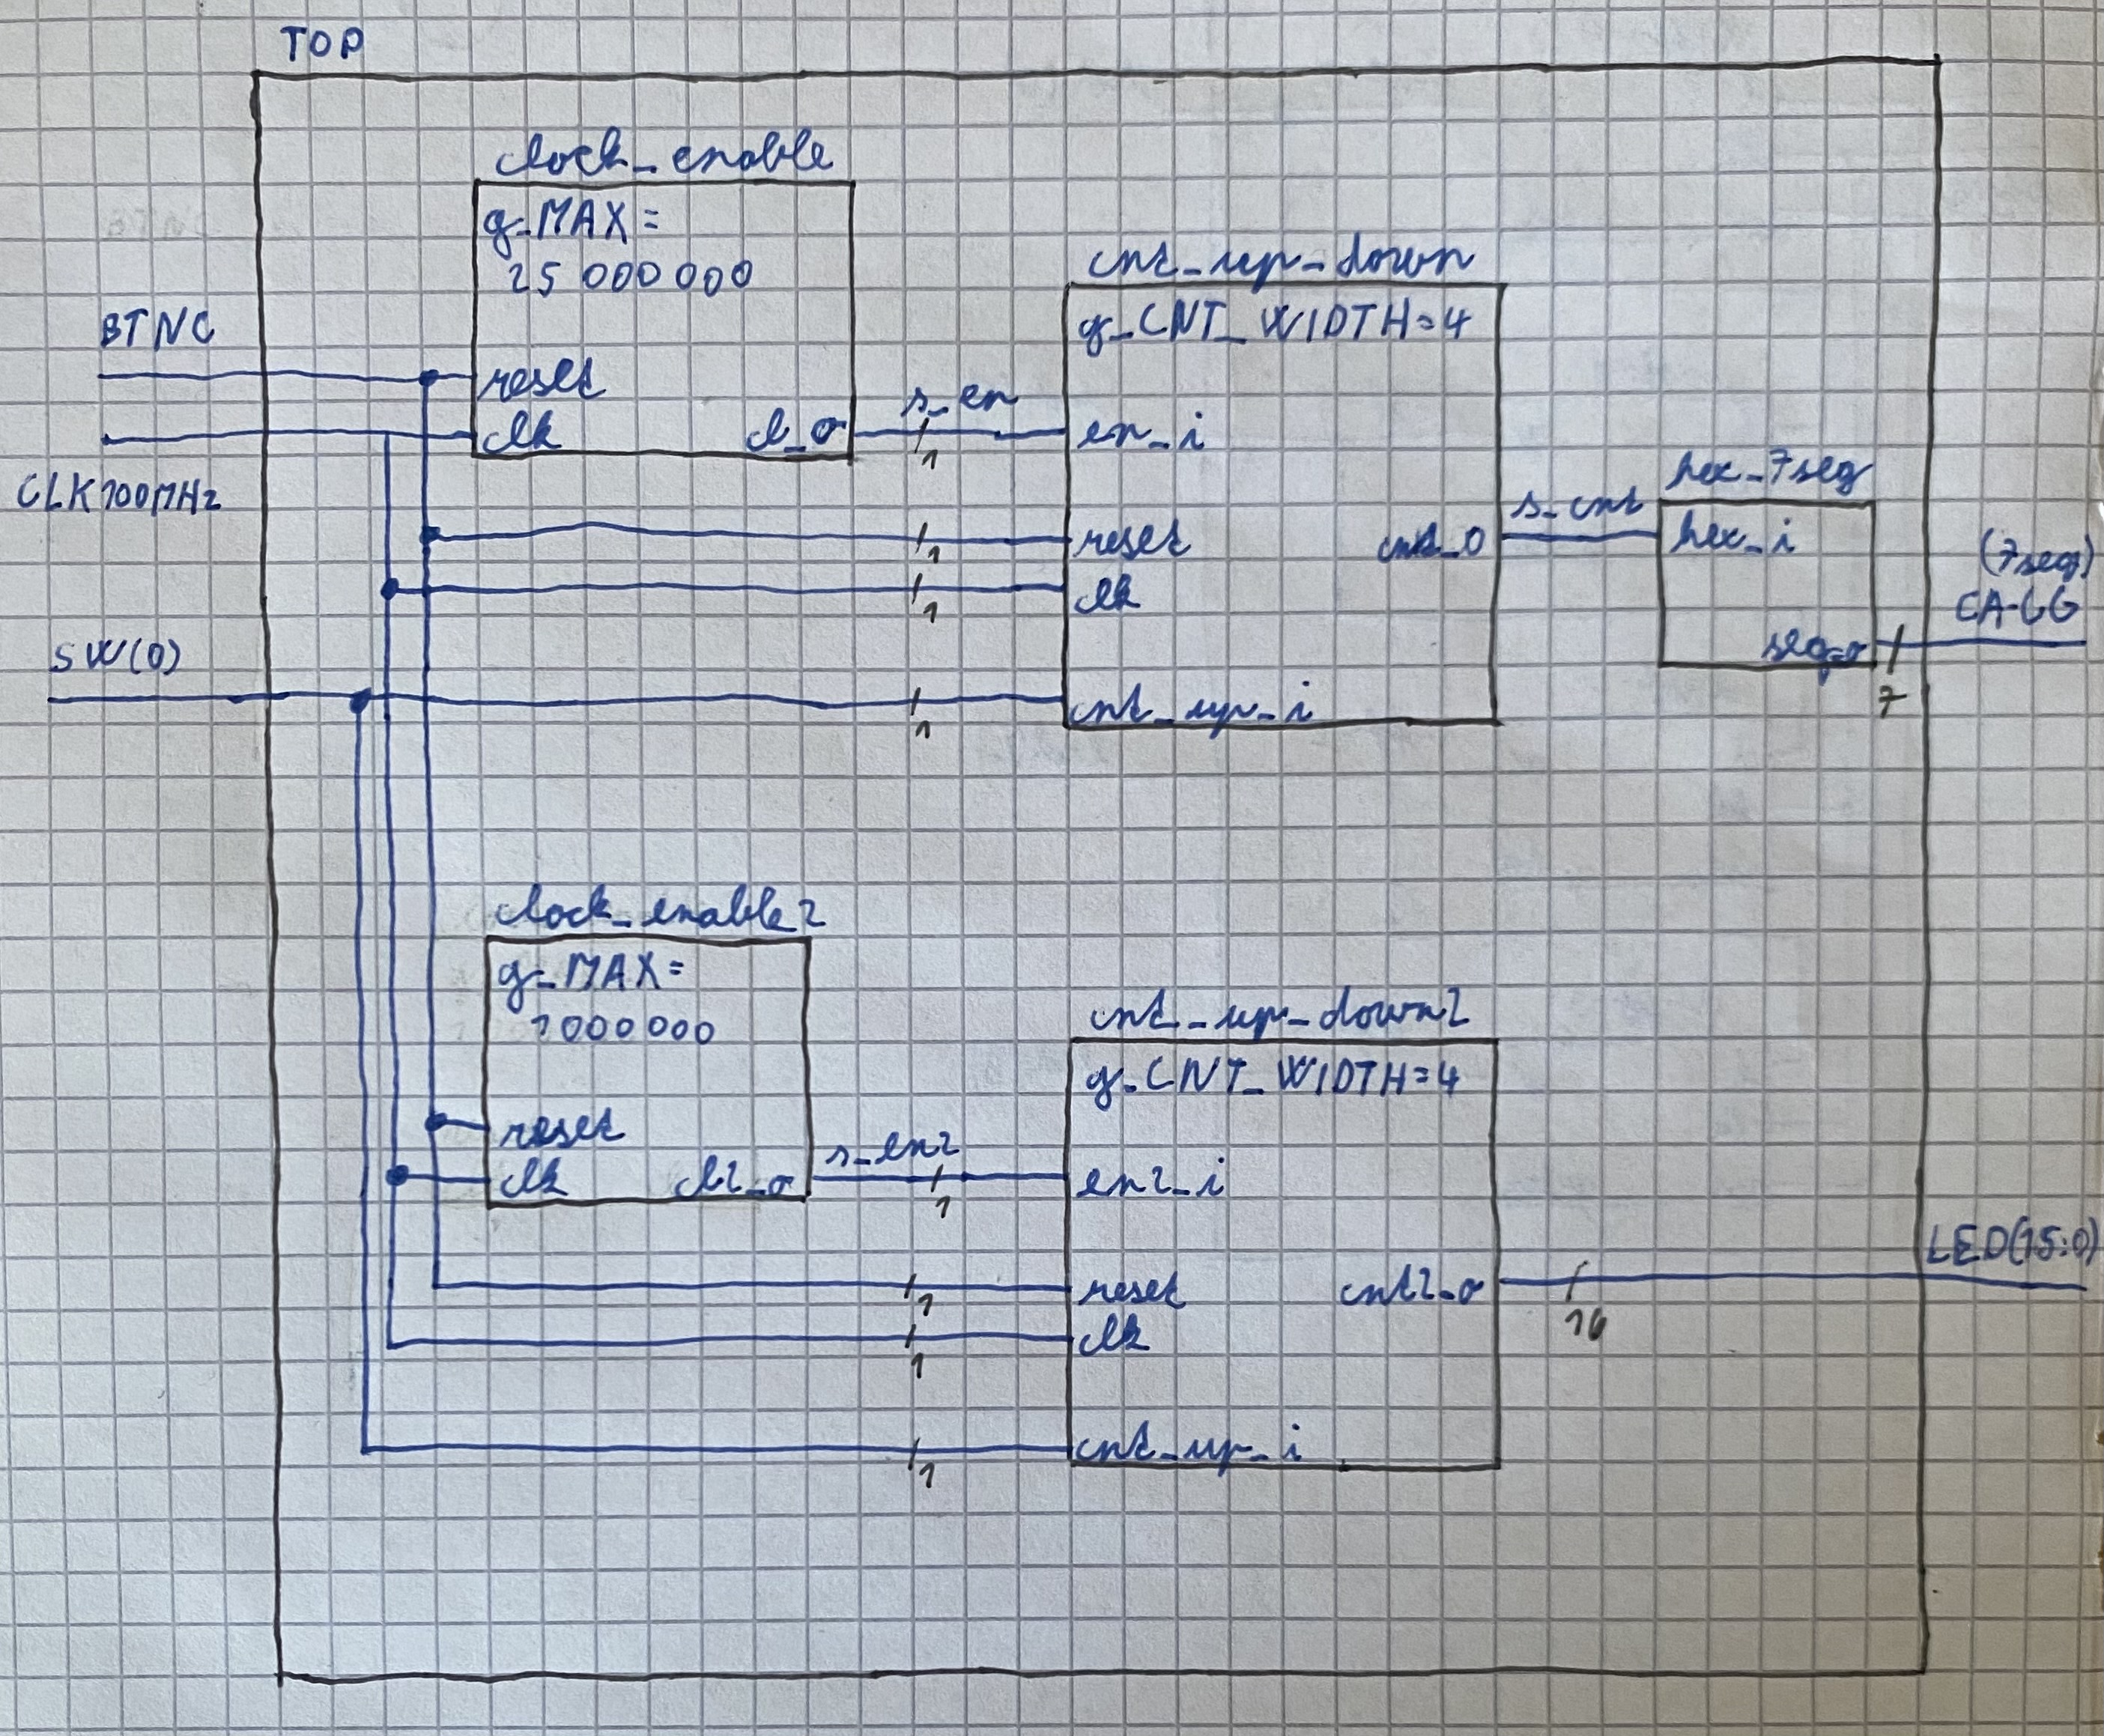 TOP
clock_enable
g_MAX=
25 000 000
BTNC
reset
clk
CLK100MHz
SW(0)
s_en
1
cnt_up_down
g_CNT_WIDTH=4
en_i
reset
1
clk
1
cnt_up_i
1
cnt_o
s_cnt
hex_7seg
hex_i
seg_o
7
(7seg)
CA-CG
clock_enable2
g_MAX=
1000000
reset
clk
s_en2
1
cnt_up_down2
g_CNT_WIDTH=4
en2_i
reset
1
clk
1
cnt_up_i
1
cnt2_o
16
LED(15:0)